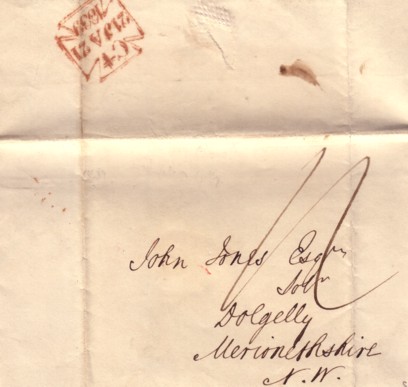 John Jones Esqre
Solr
Dolgelly
Merionethshire
N.W.